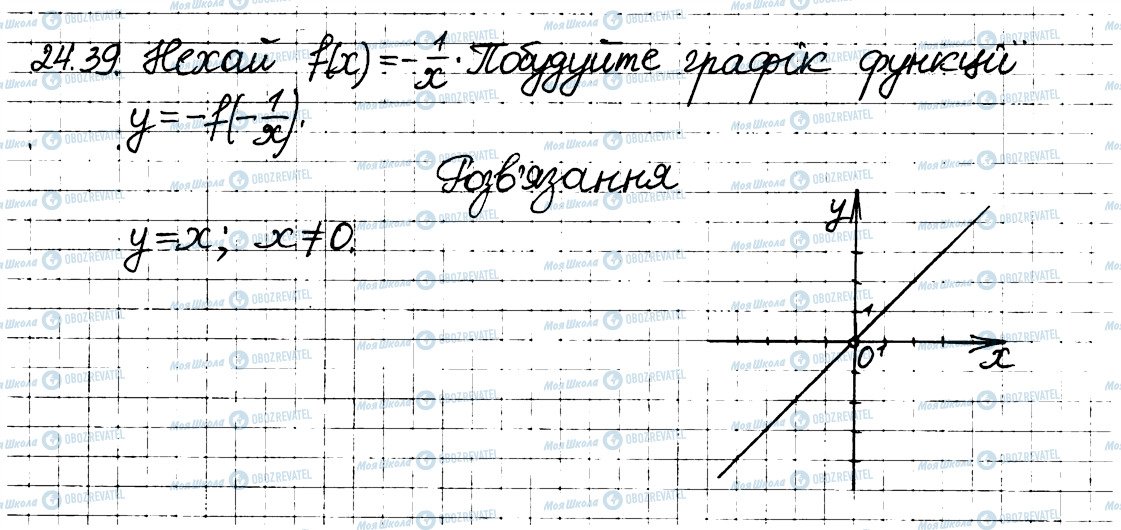 24.39. Нехай f(x) = -1/x. Побудуйте графік функції
y = -f(-1/x).
Розв'язання
y = x; x ≠ 0.
y
1
0 1
x
МояШкола OBOZREVATEL